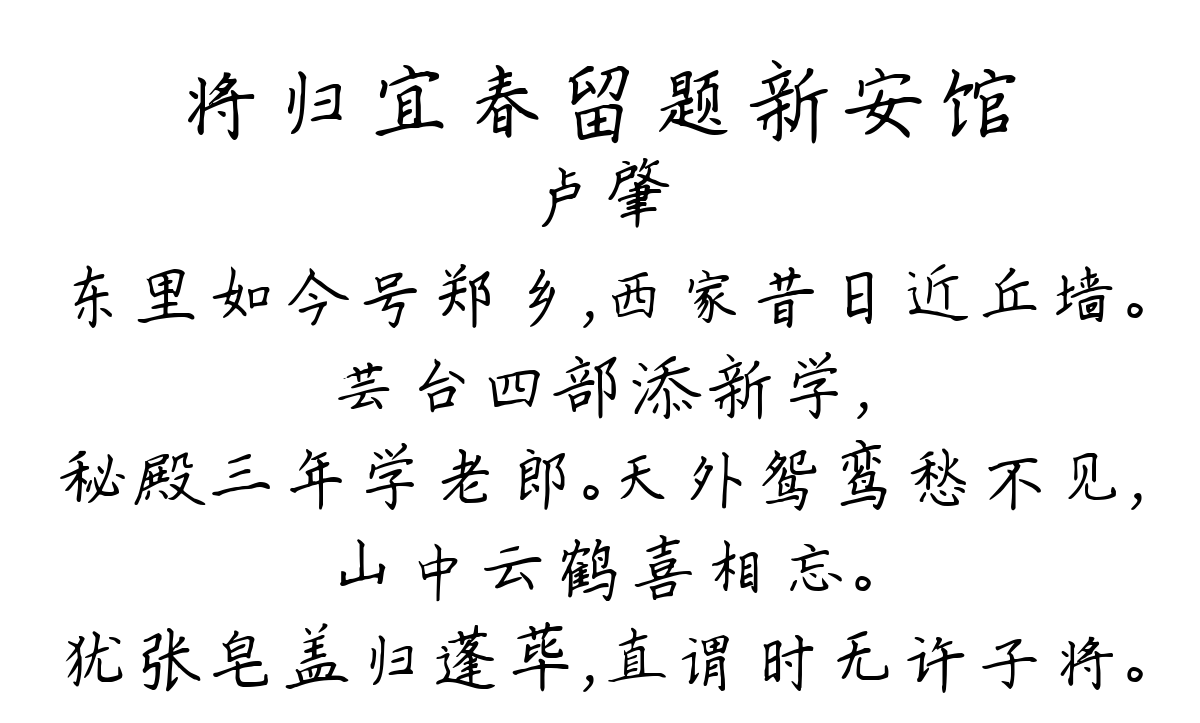 将归宜春留题新安馆
卢肇
东里如今号郑乡,西家昔日近丘墙。
芸台四部添新学,
秘殿三年学老郎。天外鸳鸾愁不见,
山中云鹤喜相忘。
犹张皂盖归蓬荜,直谓时无许子将。